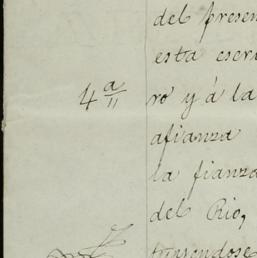 del presen
esta escri
4ª
ro y á la
afianza
la fianza
del Rio,